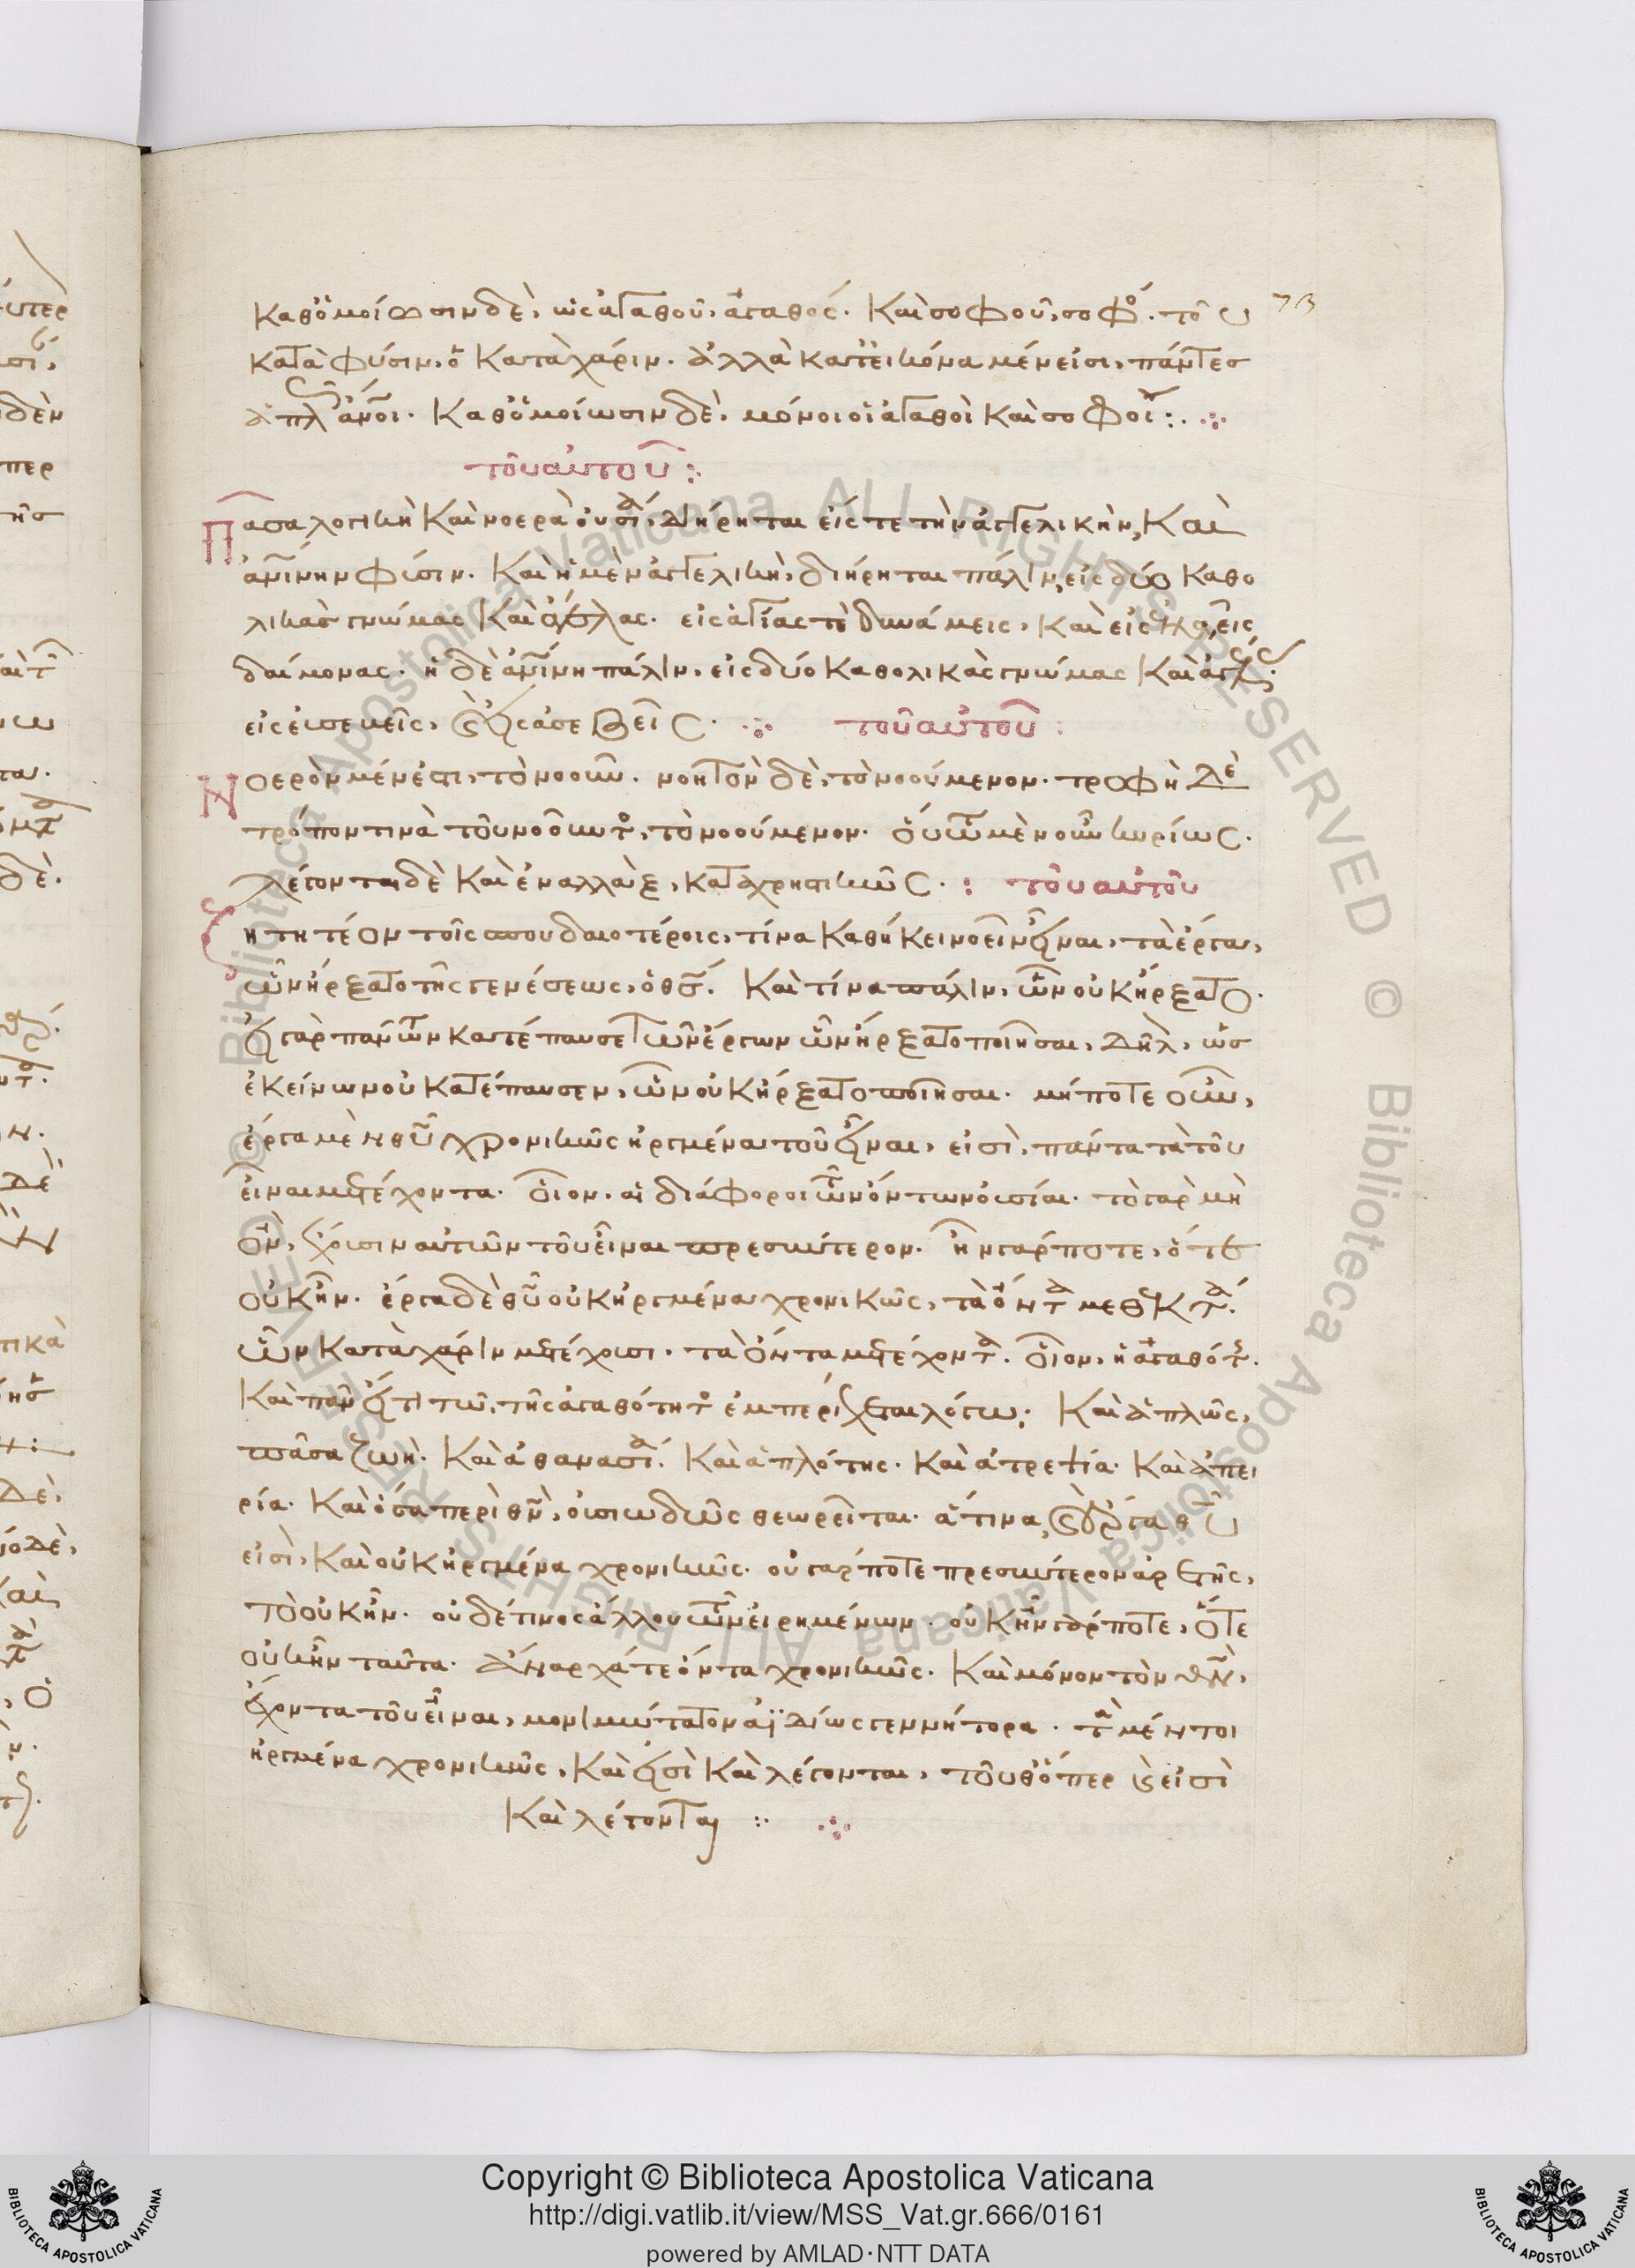 καθ' ὁμοίωσιν δὲ, ὡς ἀγαθοῦ, ἀγαθός. καὶ σοφοῦ, σοφός. τοῦ
73
κατὰ φύσιν, ὁ κατὰ χάριν. ἀλλὰ κατ' εἰκόνα μέν εἰσι, πάντες
καθ' ὁμοίωσιν δὲ, μόνοι οἱ ἀγαθοὶ καὶ σοφοί :.
τοῦ αὐτοῦ :
Πᾶσα λογικὴ καὶ νοερὰ οὐσία, διήρηται εἴς τε τὴν ἀγγελικὴν, καὶ
ἀνίνην φύσιν. καὶ ἡ μὲν ἀγγελικὴ, διήρηται πάλιν, εἰς δύο καθο
λικὰς γνώμας καὶ εἰς ἁγίας τὲ δυνάμεις, καὶ εἰς
δαίμονας. ἡ δὲ ἀνίνη πάλιν, εἰς δύο καθολικὰς γνώμας καὶ
εἰς εὐσεβεῖς, ἀσεβεῖς. τοῦ αὐτοῦ :
Νοερὸν μέν ἐστι, τὸ νοοῦν. νοητὸν δὲ, τὸ νοούμενον. τροφὴ δὲ
τρόπον τινὰ τοῦ νοοῦντος, τὸ νοούμενον. οὕτω μὲν οὖν κυρίως.
λέγονται δὲ καὶ ἐναλλὰξ, καταχρηστικῶς. : τοῦ αὐτοῦ
Ζητητέον τοῖς σπουδαιοτέροις, τίνα καθήκει νοεῖν εἶναι, τὰ ἔργα,
ὧν ἤρξατο τῆς γενέσεως, ὁ θς. καὶ τίνα πάλιν, ὧν οὐκ ἤρξατο.
εἰ γὰρ πάντων κατέπαυσε τῶν ἔργων ὧν ἤρξατο ποιῆσαι, δῆλ, ὡς
ἐκείνων οὐ κατέπαυσεν, ὧν οὐκ ἤρξατο ποιῆσαι. μήποτε οὖν,
ἔργα μὲν θῦ χρονικῶς ἠργμένα τοῦ εἶναι, εἰσὶ, πάντα τὰ τοῦ
εἶναι μετέχοντα. οἷον. αἱ διάφοροι τῶν ὄντων οὐσίαι. τὸ γὰρ μὴ
ὂν, ἔχουσιν αὐτῶν τοῦ εἶναι πρεσβύτερον. ἦν γάρ ποτε, ὅτε
οὐκ ἦν. ἔργα δὲ θῦ οὐκ ἠργμένα χρονικῶς, τὰ ὄντα μεθεκτά.
ὧν κατὰ χάριν μετέχουσι. τὰ ὄντα μετέχοντα. οἷον, ἡ ἀγαθότης.
καὶ πᾶν εἴ τι τῶ, τῆς ἀγαθότητος ἐμπεριέχεται λόγω. καὶ ἁπλῶς,
πᾶσα ζωὴ. καὶ ἀθανασία. καὶ ἁπλότης. καὶ ἀτρεψία. καὶ ἀπει
ρία. καὶ ὅσα περὶ θν, οὐσιωδῶς θεωρεῖται. ἅτινα, καὶ ἔργα θῦ
εἰσὶ, καὶ οὐκ ἠργμένα χρονικῶς. οὐ γάρ ποτε πρεσβύτερον ἀρετῆς,
τὸ οὐκ ἦν. οὐδέ τινος ἄλλου τῶν εἰρημένων. οὐκ ἦν γάρ ποτε, ὅτε
οὐκ ἦν ταῦτα. ἄναρχά τε ὄντα χρονικῶς. καὶ μόνον τὸν θν,
ἔχοντα τοῦ εἶναι, μονικώτατον ἀϊδίως γεννήτορα. τὰ μέντοι
ἠργμένα χρονικῶς, καὶ εἰσὶ καὶ λέγονται, τοῦθ' ὅπερ καὶ εἰσὶ
καὶ λέγονται :.
Copyright © Biblioteca Apostolica Vaticana
http://digi.vatlib.it/view/MSS_Vat.gr.666/0161
powered by AMLAD·NTT DATA
BIBLIOTECA APOSTOLICA VATICANA
BIBLIOTECA APOSTOLICA VATICANA
© Biblioteca Apostolica Vaticana ALL RIGHTS RESERVED © Biblioteca Apostolica Vaticana ALL RIGHTS RESERVED